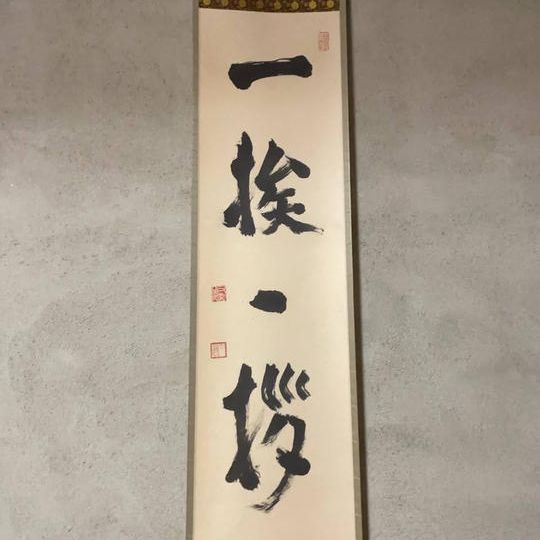 一挨一拶